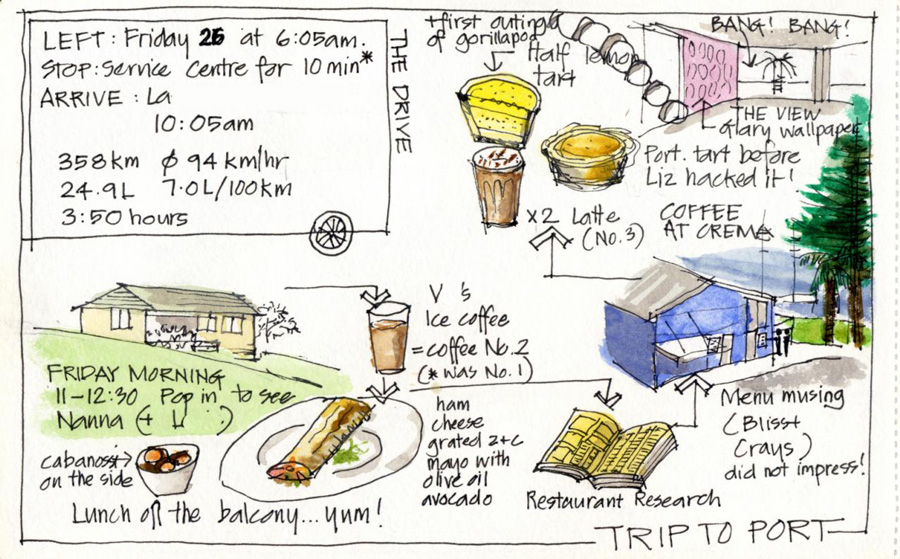 LEFT: Friday 25 at 6:05am.
STOP: Service Centre for 10 min*
ARRIVE: La
10:05am
358km Ø 94 km/hr
24.9L 7.0L/100km
3:50 hours
THE DRIVE
+first outing
of gorillapod
Half lemon
tart
BANG! BANG!
THE VIEW
Glary wallpaper
Port. tart before
Liz hacked it!
x2 Latte
(No.3)
COFFEE
AT CREMA
V 's
Ice coffee
= coffee No.2
(* was No.1)
FRIDAY MORNING
11-12:30 Pop in to see
Nanna (+ )
cabanossi
on the side
Lunch on the balcony... yum!
ham
cheese
grated z+c
mayo with
olive oil
avocado
Menu musing
(Bliss+
Crays)
did not impress!
Restaurant Research
TRIP TO PORT